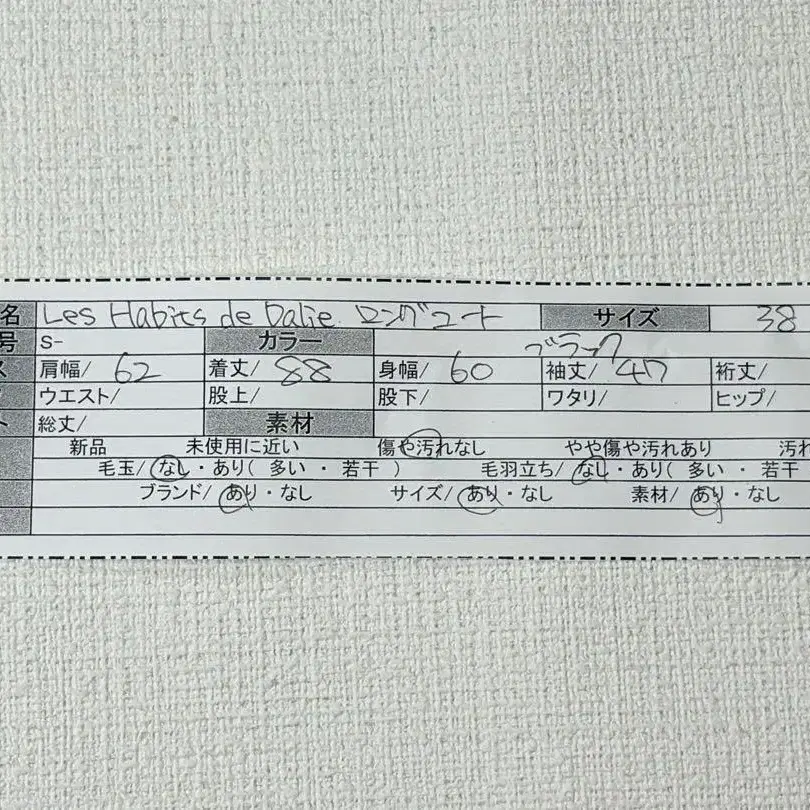 名 Les Habits de Dalie ロングコート サイズ 38
号 S- カラー ブラック
ス 肩幅/ 62 着丈/ 88 身幅/ 60 袖丈/ 47 裄丈/
ウエスト/ 股上/ 股下/ ワタリ/ ヒップ/
ト 総丈/ 素材
新品 未使用に近い 傷や汚れなし やや傷や汚れあり 汚れ
毛玉/ なし・あり( 多い ・ 若干 ) 毛羽立ち/ なし・あり( 多い ・ 若干
ブランド/ あり・なし サイズ/ あり・なし 素材/ あり・なし